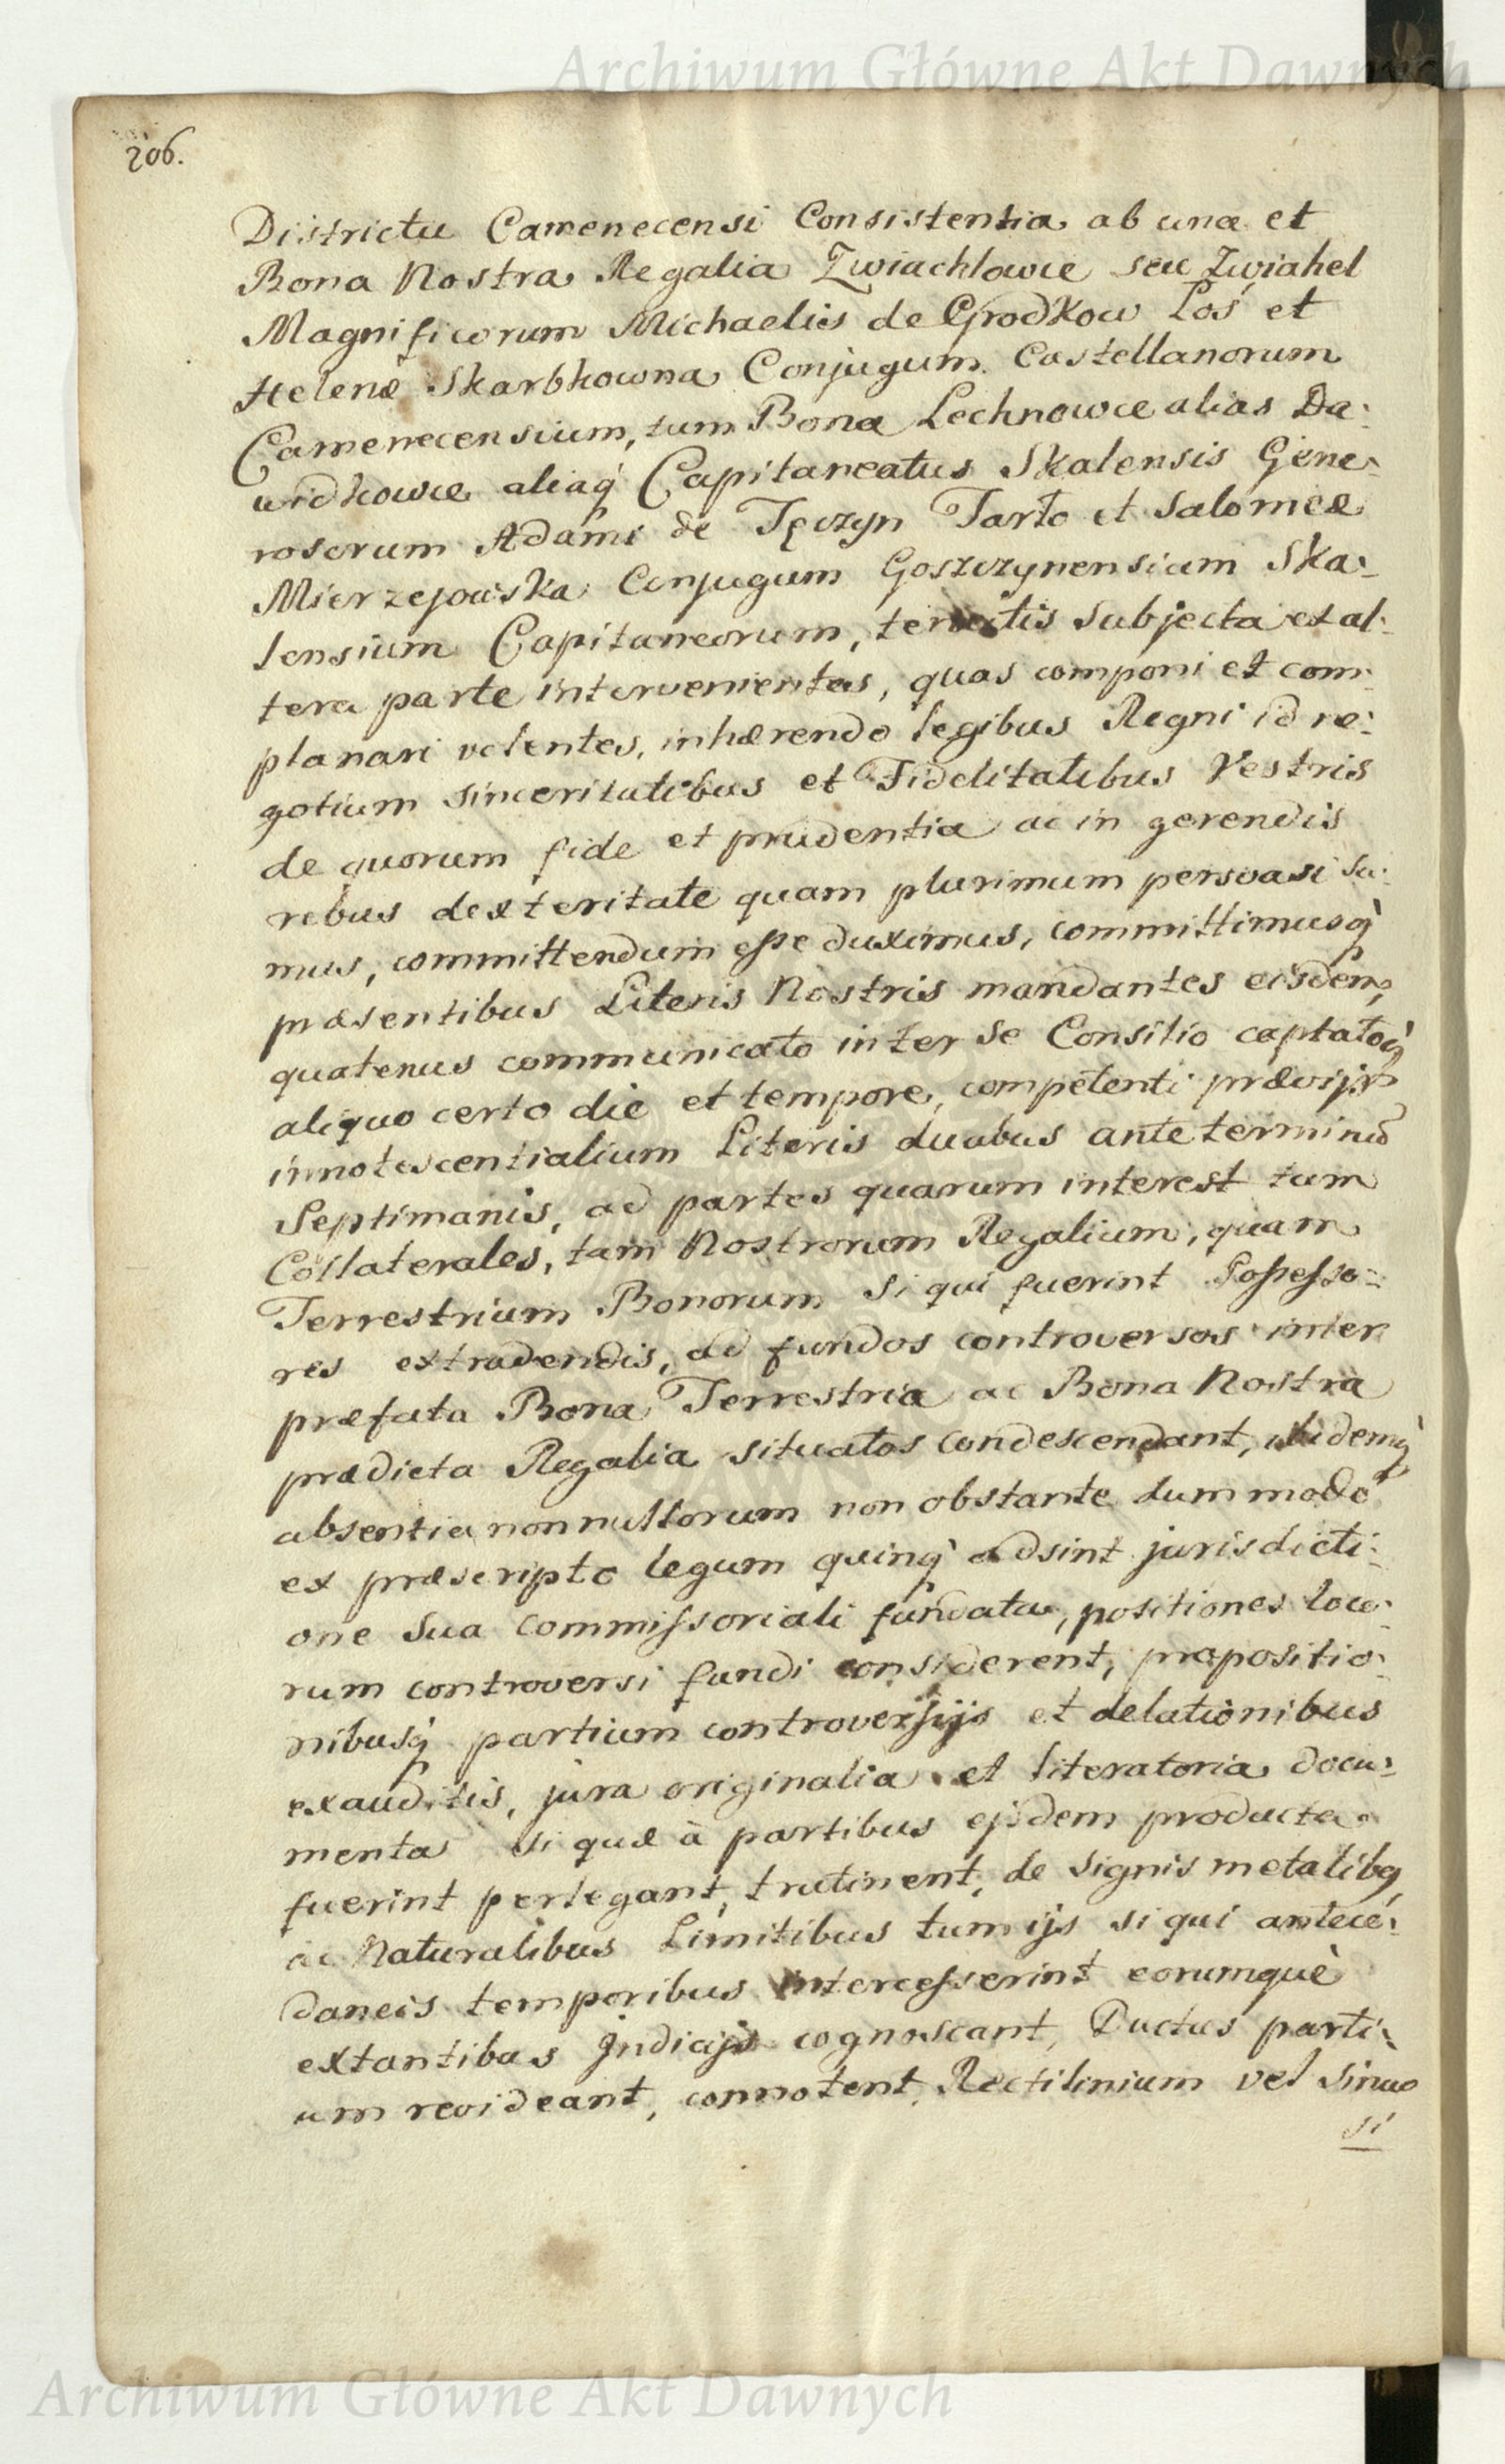 Archiwum Główne Akt Dawnych
206.
Districtu Camenecensi Consistentia ab una et
Bona Nostra Regalia Zwiachlowce seu Zwiahel
Magnificorum Michaelis de Grodkow Łoś et
Helenæ Skarbkowna Conjugum Castellanorum
Camenecensium, tum Bona Lechnowce alias Da:
widkowce aliaq́ Capitaneatus Skalensis Gene:
rosorum Adami de Tęczyn Tarło et Salomeæ
Mierzejowska Conjugum Goszczynensium Ska:
lensium Capitaneorum, tenutis Subjecta ex al:
tera parte intervenientes, quas componi et com:
planari volentes, inhærendo legibus Regni id ne:
gotium Sinceritatibus et Fidelitatibus Vestris
de quorum fide et prudentia ac in gerendis
rebus dexteritate quam plurimum persvasi Su:
mus, committendum esse duximus, committimusq́
præsentibus Literis Nostris mandantes eisdem,
quatenus communicato inter Se Consilio captatoq́
aliquo certo die et tempore, competenti prævijs
innotescentialium Literis duabus ante terminũ
Septimanis, ad partes quarum interest tum
Collaterales, tam Nostrorum Regalium, quam
Terrestrium Bonorum Si qui fuerint Possesso:
res extradendis, ad fundos controversos inter
præfata Bona Terrestria ac Bona Nostra
prædicta Regalia situatos condescendant, ibidemq́
absentia nonnullorum non obstante dummodo
ex præscripto legum quinq́ adsint jurisdicti:
one Sua Commissoriali fundata, positiones loco:
rum controversi fundi considerent, propositio:
nibusq́ partium controversijs et delationibus
exauditis, jura originalia et literatoria docu:
menta si quæ à partibus ejsdem producta
fuerint perlegant, trutinent, de Signis metalibq́
ac Naturalibus Limitibus tum ijs si qui antece:
daneis temporibus intercesserint eorumquè
extantibus Jndicijs cognoscant, Ductus parti:
um revideant, connotent, Rectilinium vel Sinuo
si
Archiwum Główne Akt Dawnych